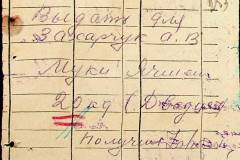 Выдать для
Захарчук А.В
Муки Ячмен
20 кг (Двадца
Получил